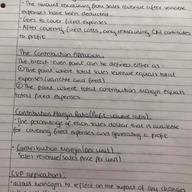 - The amount remaining from sales revenue after variable
expenses have been deducted.
- Goes to cover fixed expenses
- After covering fixed costs, any remaining CM contributes
to profit.
The Contribution Approach
The break-even point can be defined either as:
① The point where total sales revenue equals total
expenses (variable and fixed)
② The point where total contribution margin equals
total fixed expenses.
Contribution Margin Ratio (Profit-volume ratio):
- The percentage of each sales dollar that is available
for covering fixed expenses and generating a profit
- Contribution Margin (per unit)
Sales revenue/sales price (per unit)
CVP applications:
- allows managers to reflect on the impact of any changes